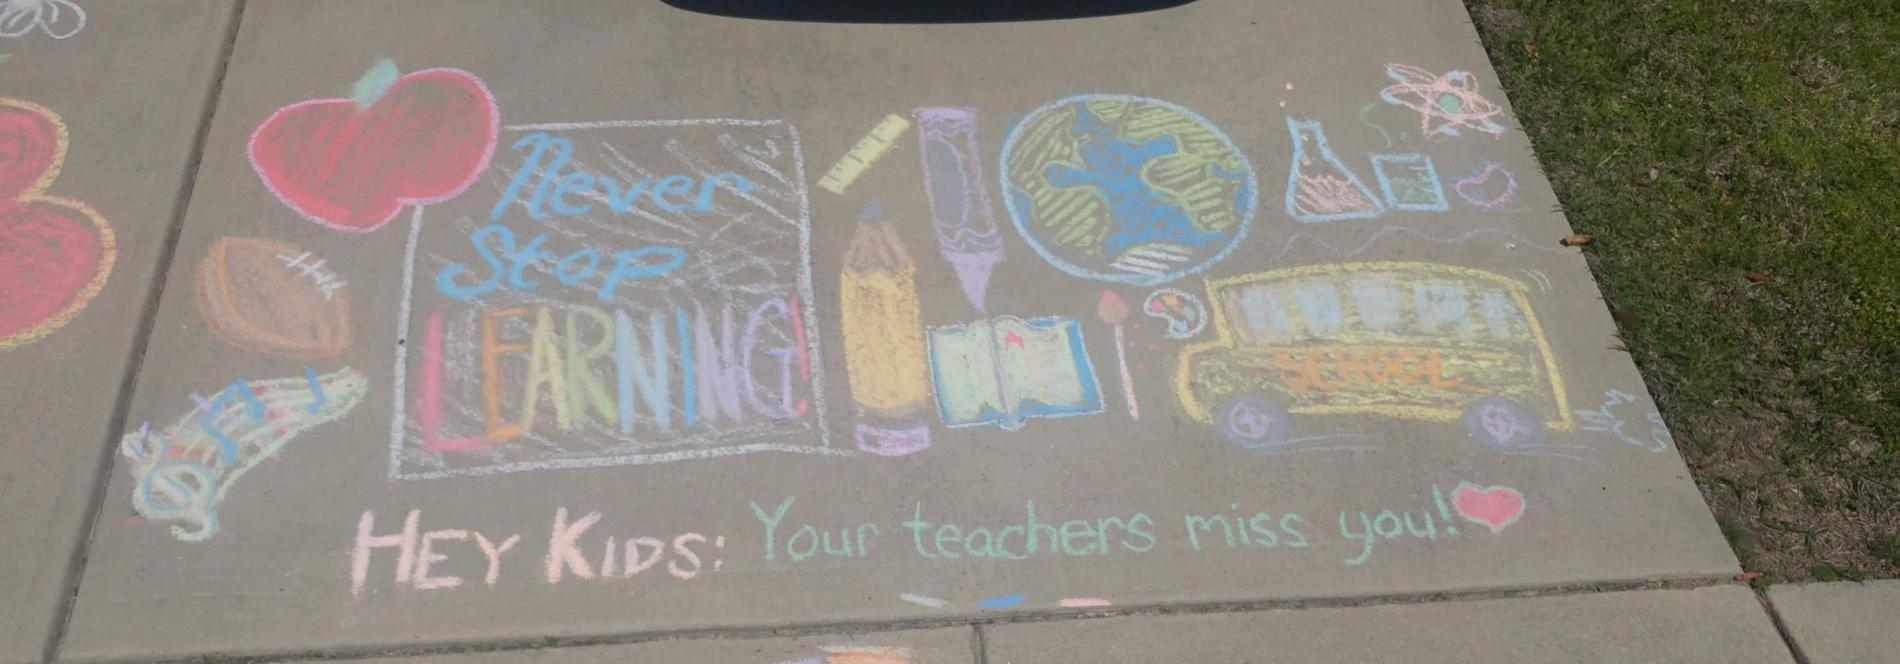 Never
Stop
LEARNING!
SCHOOL
HEY KIDS: Your teachers miss you!